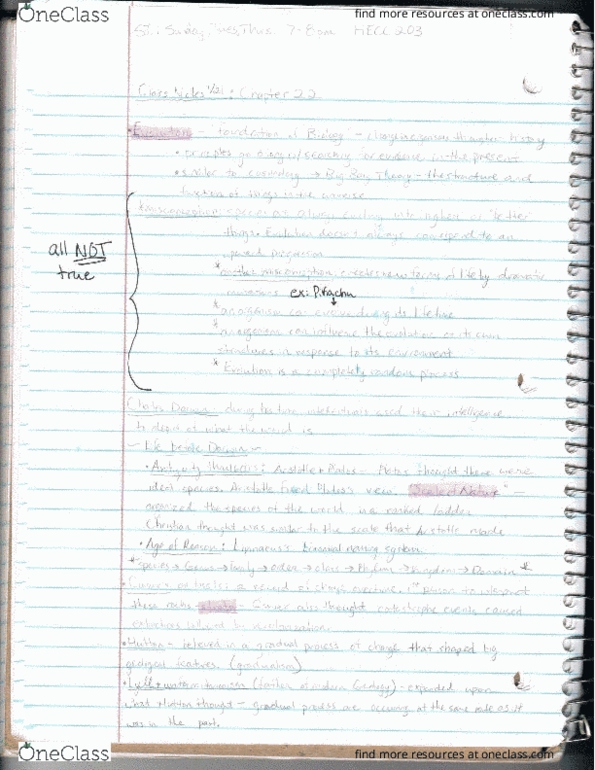 OneClass
find more resources at oneclass.com
SI: Sunday, Tues, Thurs. 7-8pm HECC 203
Class Notes 1/21: Chapter 22
• Evolution - "foundation of Biology" - change in species through history
• principles go along w/ searching for evidence in the present
• similar to cosmology → Big Bang Theory - the structure and
function of things in the universe
misconception: species are always evolving into higher or "better"
things. Evolution doesn't always correspond to an
upward progression
all NOT
true
* another misconception creates new forms of life by dramatic
ex: Pikachu
* an organism can evolve during its lifetime
* an organism can influence the evolution of its own
structures in response to its environment
* Evolution is a completely random process
Charles Darwin - during his time, used their intelligence
to depict what the world is
- Life before Darwin -
• Antiquity thinkers: Aristotle + Plato - Plato thought there were
ideal species. Aristotle Plato's view. "Scale of Nature" -
organized the species of the world in a ranked ladder
Christian thought was similar to the scale that Aristotle made
• Age of Reason: Linnaeus's binomial naming system
* species → Genus → family → order → class → Phylum → Kingdom → Domain *
• Cuvier a record of 1st person to interpret
these rocks - Cuvier also thought catastrophic events caused
extinction followed by
• Hutton - believed in a gradual process of change that shaped big
geological features (gradualism)
• Lyell (father of modern Geology) - expanded upon
what Hutton thought - gradual process are occurring at the same rate as it
was in the past.
OneClass
find more resources at oneclass.com